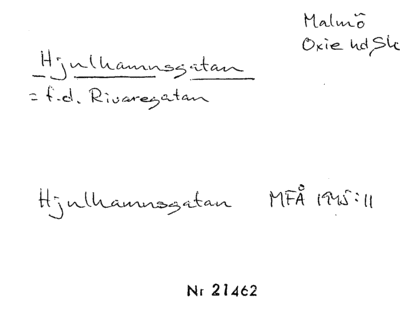 Malmö
Oxie hd Sk
Hjulhamnsgatan
= f.d. Rivaregatan
Hjulhamnsgatan MFÅ 1945:11
Nr 21462